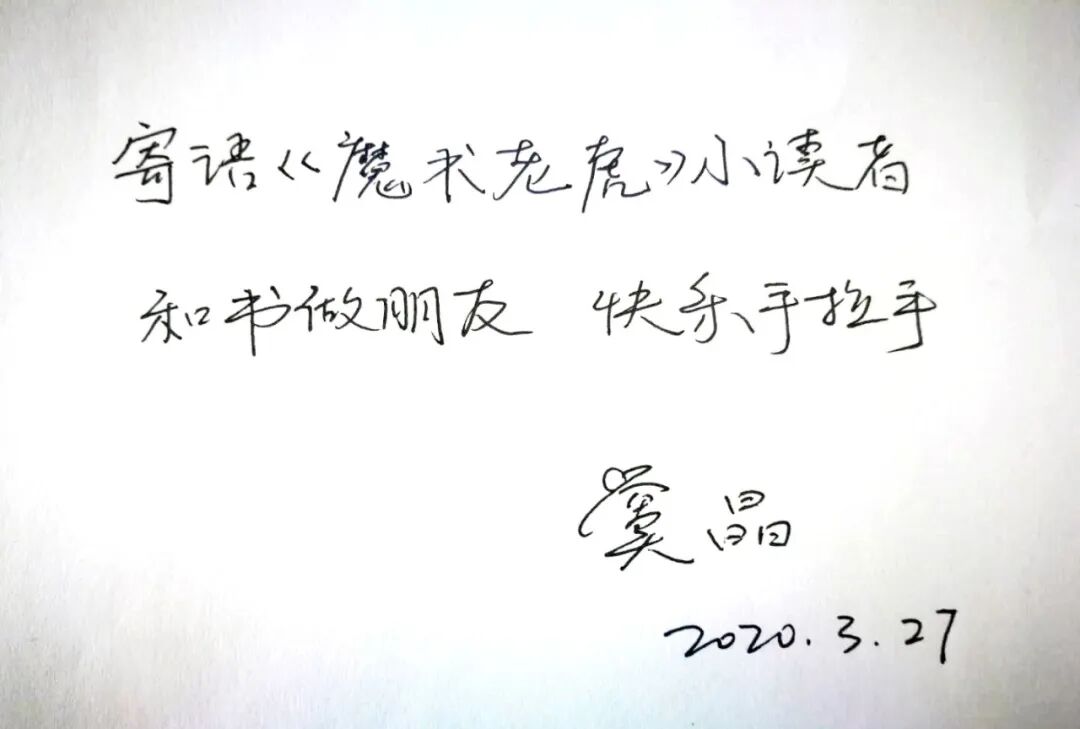 寄语《魔术老虎》小读者
和书做朋友 快乐手拉手
窦晶
2020.3.27